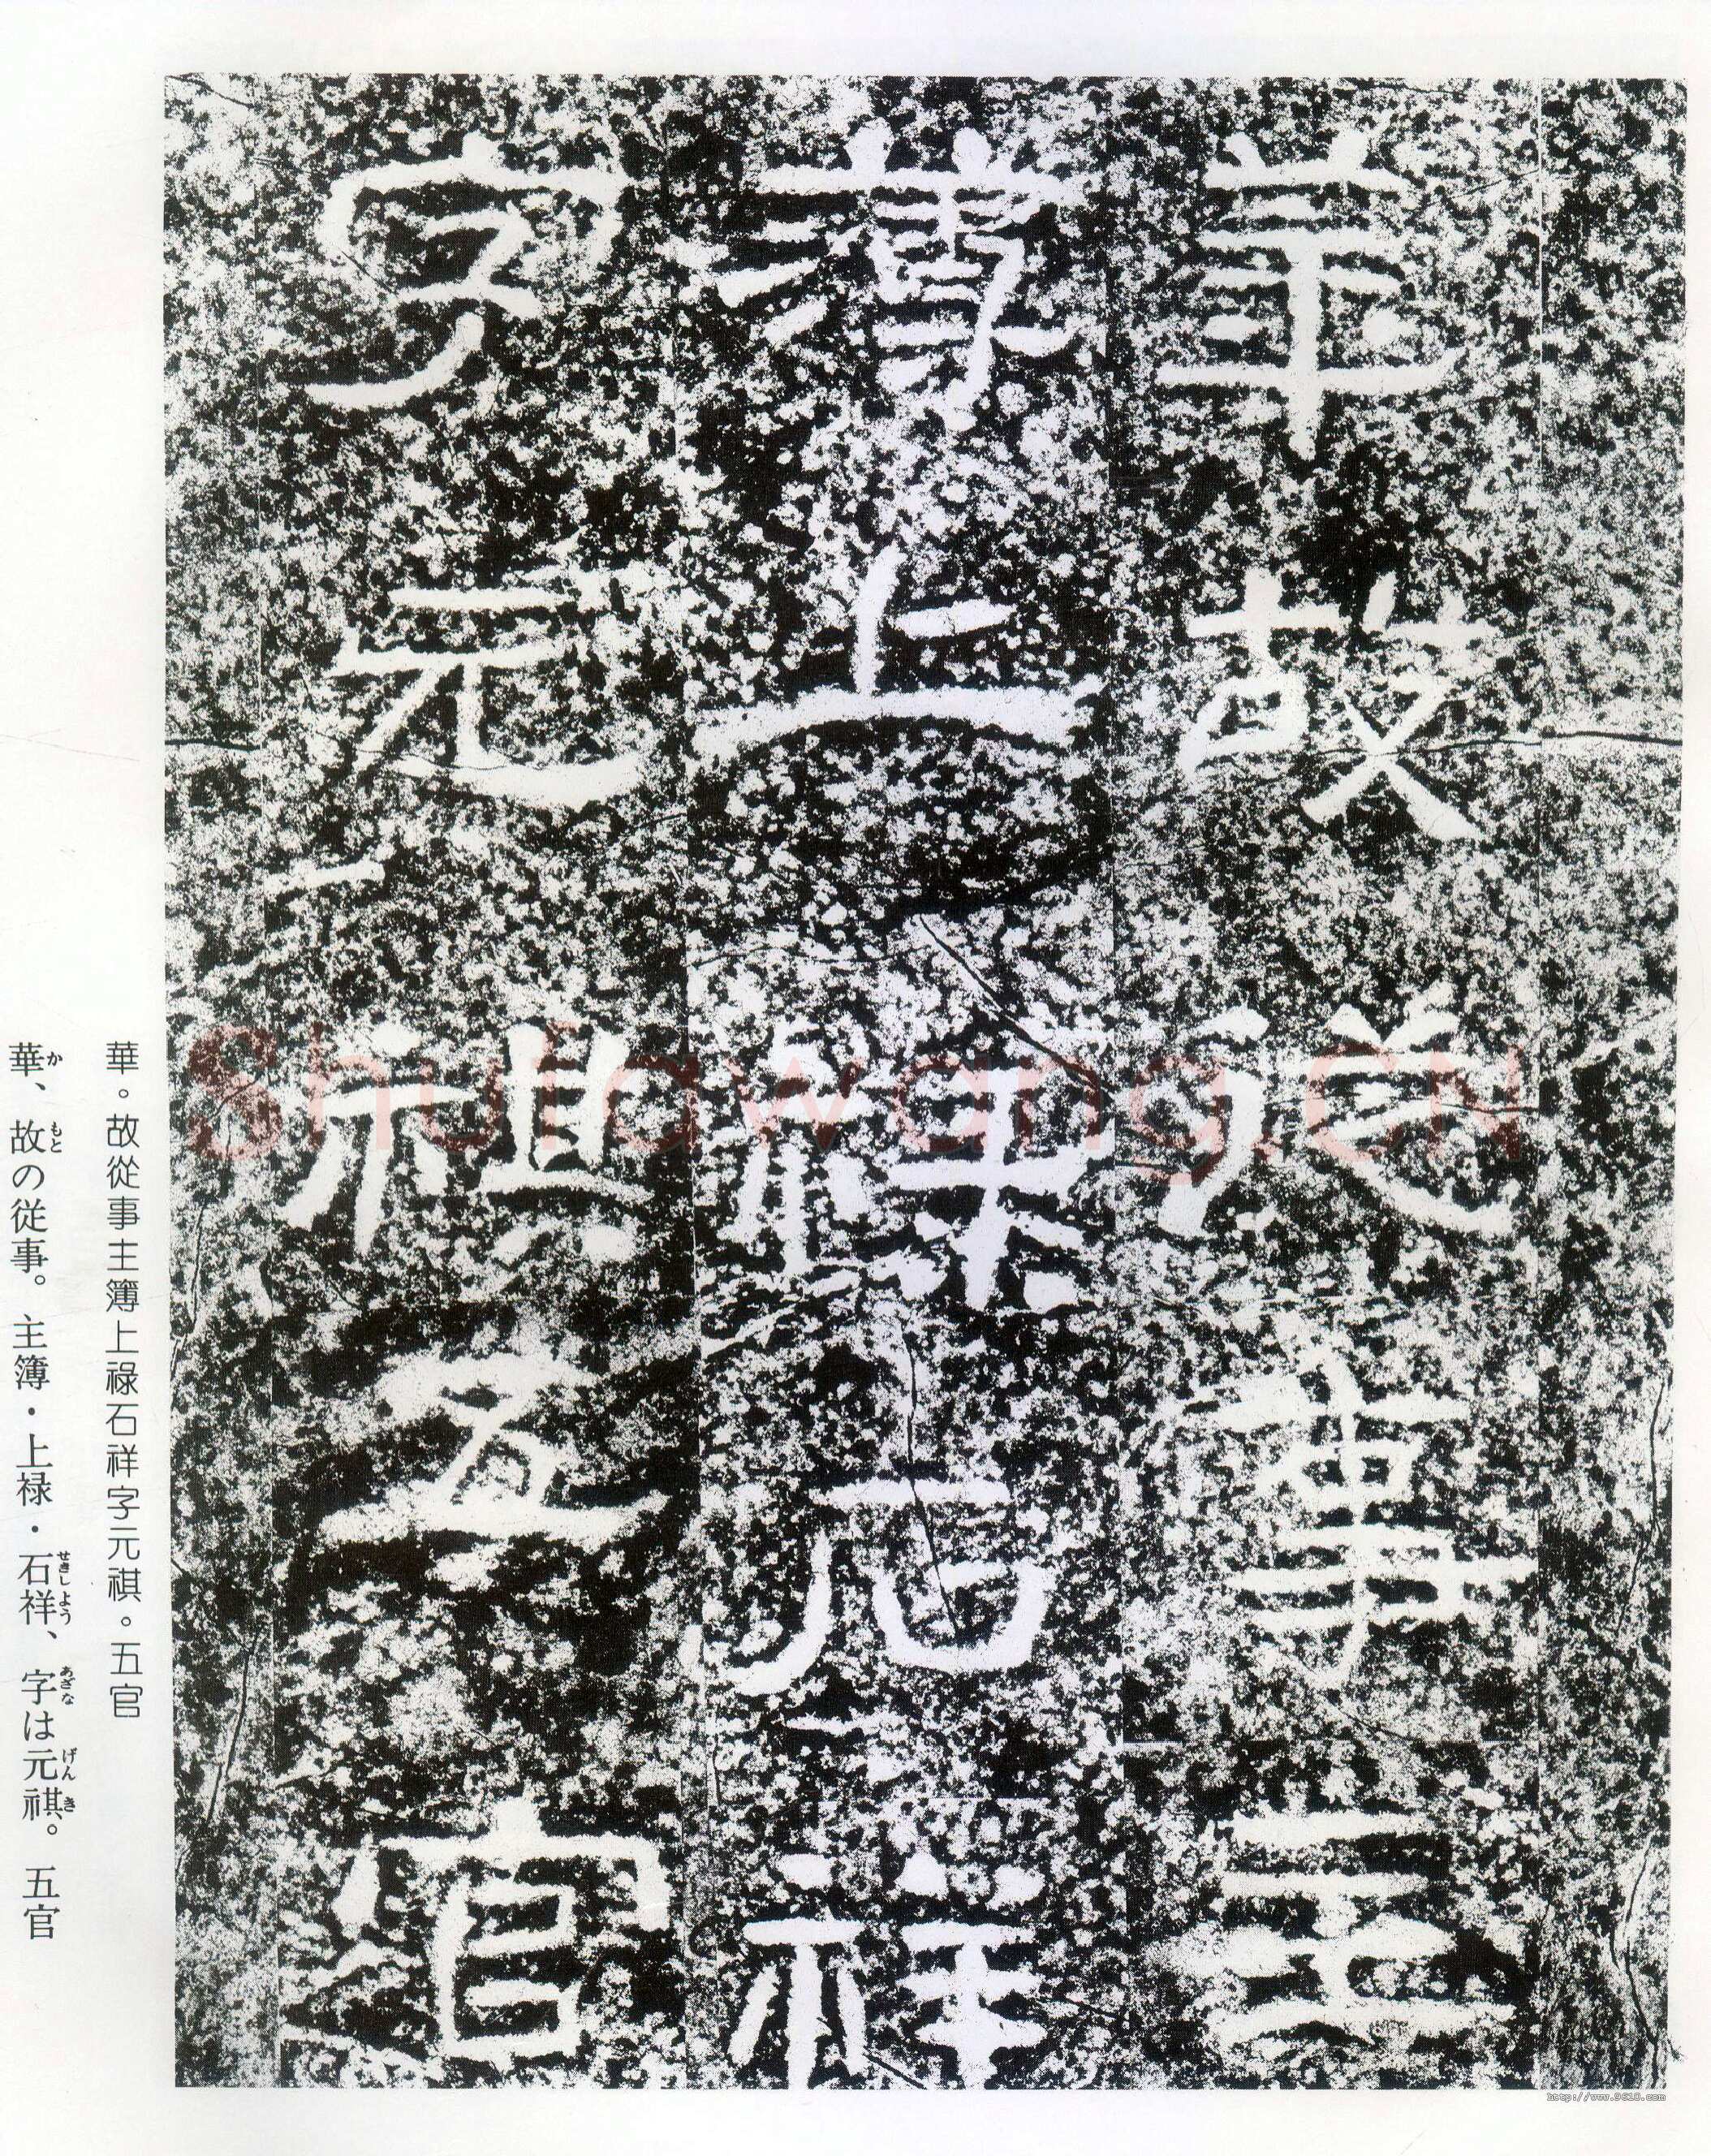 華故從事主
簿上祿石祥
字元祺五官
華。故從事主簿上祿石祥字元祺。五官
華、故の従事。主簿・上禄・石祥、字は元祺。五官
か もと せきしよう あざな げんき
Shufawang.CN
http://www.9610.com